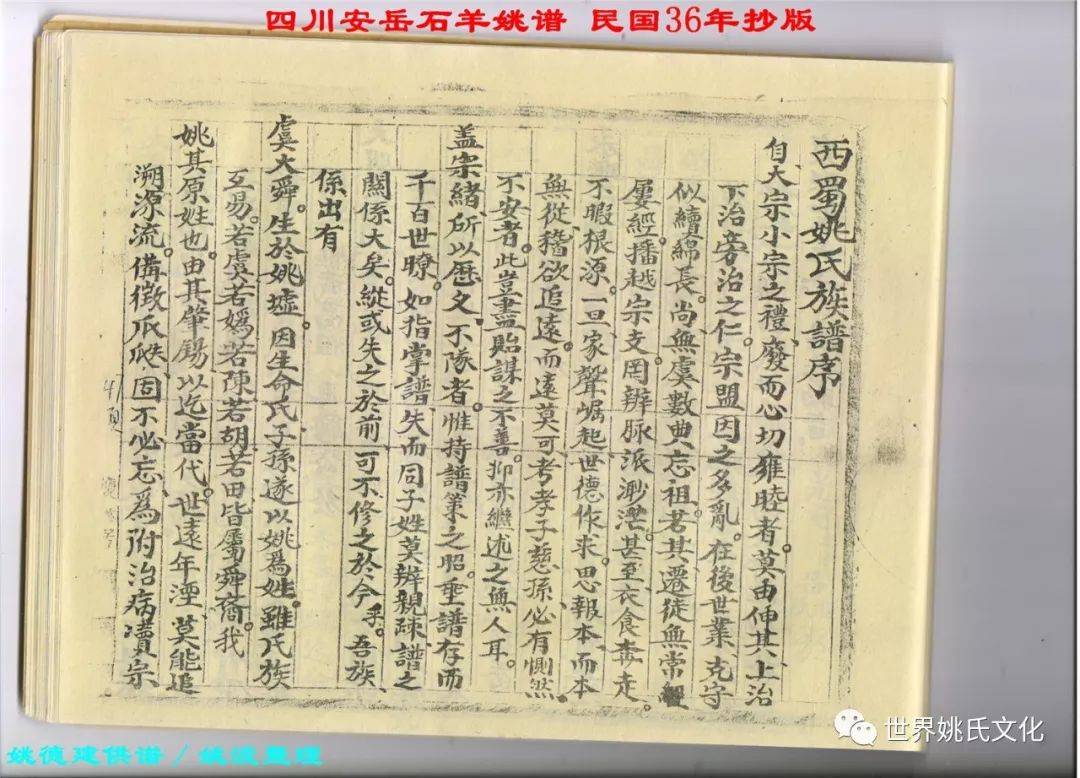 四川安岳石羊姚谱 民国36年抄版
西蜀姚氏族譜序
自大宗小宗之禮廢而心切雍睦者。莫由伸其上治
下治旁治之仁。宗盟因之多亂。在後世業克守
似續綿長。尚無虞數典忘祖。若其遷徒無常
屢經播越宗支。罔辦脉派渺茫。甚至衣食奔走。
不暇根源。一旦家聲崛起世德作求。思報本而本
無從稽欲追遠。而遠莫可考孝子慈孫必有惻然
不安者。此豈盡貽謀之不善。抑亦繼述之無人耳。
盖宗緒所以歷文不隊者。惟持譜策之昭垂譜存而
千百世瞭。如指掌譜失而同子姓莫辦親疎譜之
關係大矣。縱或失之於前可不修之於今乎。吾族
係出有
虞大舜。生於姚墟。因生命氏子孫遂以姚為姓。雖氏族
互易。若虞若嬀若陳若胡若田皆屬舜裔我
姚其原姓也。由其肇錫以迄當代。世遠年湮莫能追
溯源流。備徵瓜瓞。固不必忘為附治病凟宗
41頁
姚德建供谱／姚波整理
世界姚氏文化